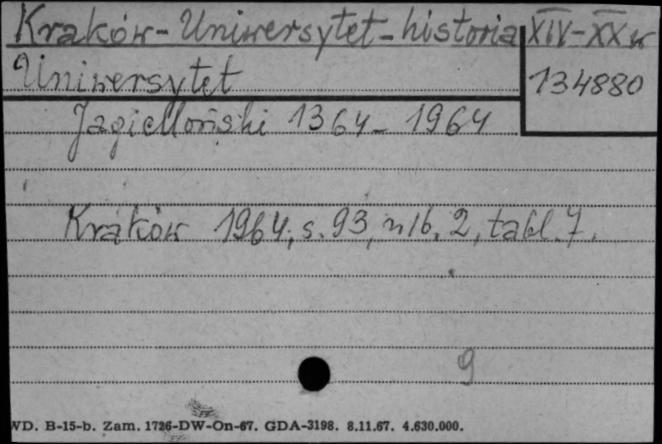 Kraków-Uniwersytet-historia XIV-XX w
Uniwersytet
134880
Jagielloński 1364-1964
Kraków 1964, s. 93, nlb. 2, tabl. 7.
9
WD. B-15-b. Zam. 1726-DW-On-67. GDA-3198. 8.11.67. 4.630.000.